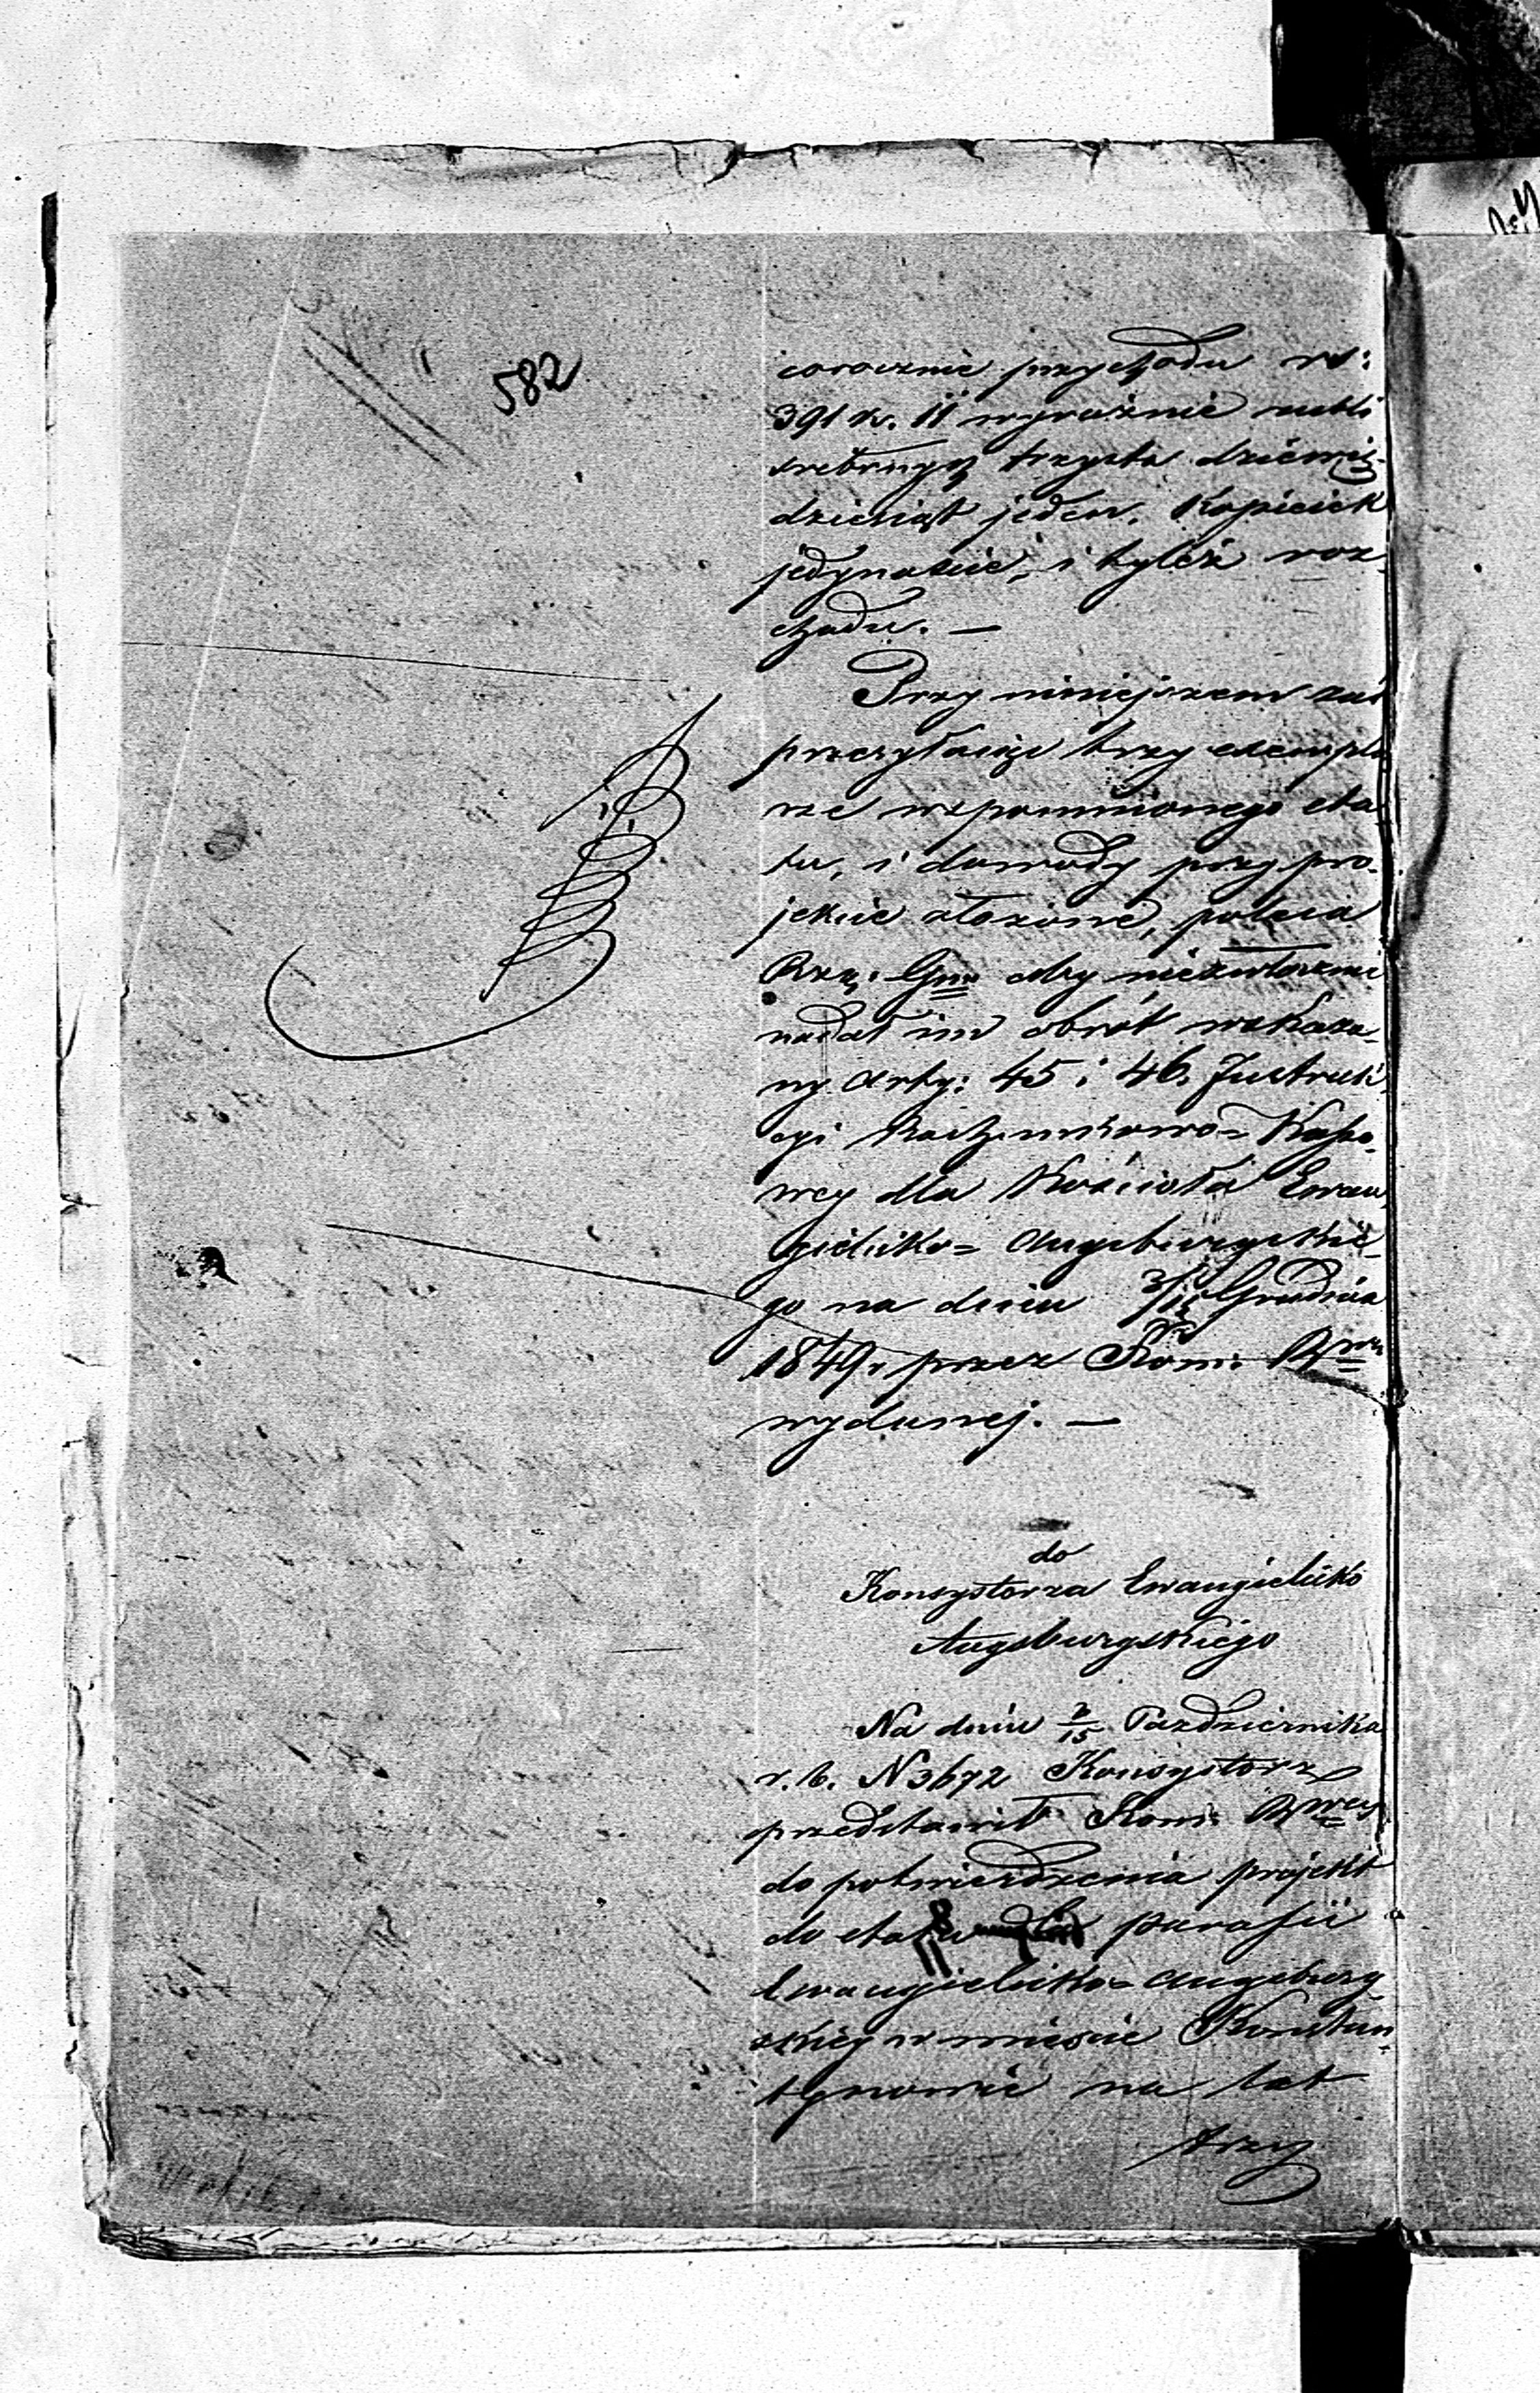 582
corocznie przychodu rs:
391 k. 11 wyraźnie rubli
srebrnych trzysta dziewię-
dziesiąt jeden, Kopieiek
jedynaście, i tyleż roz-
chodu. —
Przy niniejszem zaś
przesyłając trzy exempla
rze wspomnionego eta
tu, i dowody przy pro-
jekcie złożone, poleca
Rzą. Gnu aby niezwłocznie
nadał im obrót wskaza-
ny arty: 45 i 46. Instruk
cyi Rachunkowo= Kasso
wey dla Kościoła Ewan
gielicko= Augsburgskie-
go na dniu 3/15 Grudnia
1849 r przez Kom: R
wydanej. —
do
Konsystorza Ewangielicko
Augsburgskiego
Na dniu 3/15 Października
r. b. N 3672 Konsystorz
przedstawił Kom: R
do potwierdzenia projekt
do etatu parafii
Ewangielicko= Augsburg
skiej w mieście Konstan-
tynowie na lat
trzy